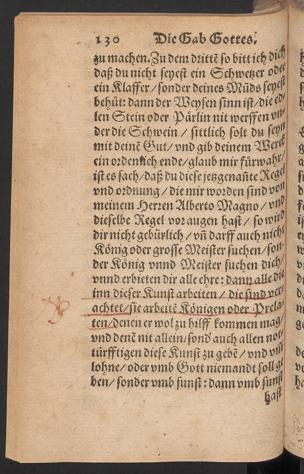 130 Die Gab Gottes.
zu machen. Zu dem dritte so bitt ich dich
daß du nicht seyest ein Schwetzer oder
ein Klaffer / sonder deines Műds seyest
behůt: dann der Weysen sinn ist / die ed-
len Stein oder Pärlin nit werffen vn-
der die Schwein / sittlich solt du seyn
mit deinē Gut / vnd gib deinem Werck
ein ordenlich ende / glaub mir fürwahr /
ist es sach / daß du diese jetzgenañte Regel
vnd ordnung / die mir worden sind von
meinem Herren Alberto Magno / vnd
dieselbe Regel vor augen hast / so wird
dir nicht gebürlich / vñ darff auch nicht
König oder grosse Meister suchen / son-
der König vnnd Meister suchen dich /
vnnd erbieten dir alle ehre: dann alle die
inn dieser Kunst arbeiten / die sind ver-
achtet / sie arbeitē Königen oder Prela-
ten / denen er wol zu hilff kommen mag /
vnd denē nit allein / sond auch allen not-
türfftigen diese Kunst zu gebē / vnd vm
lohne / oder vmb Gott niemandt soll ge-
ben / sonder vmb sunst: dann vmb sunst
hast